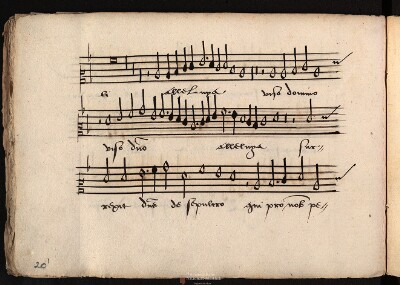 alleluya viso domino
viso dno alleluya sur-
rexit dns de sepulcro qui pro nob pe-
20